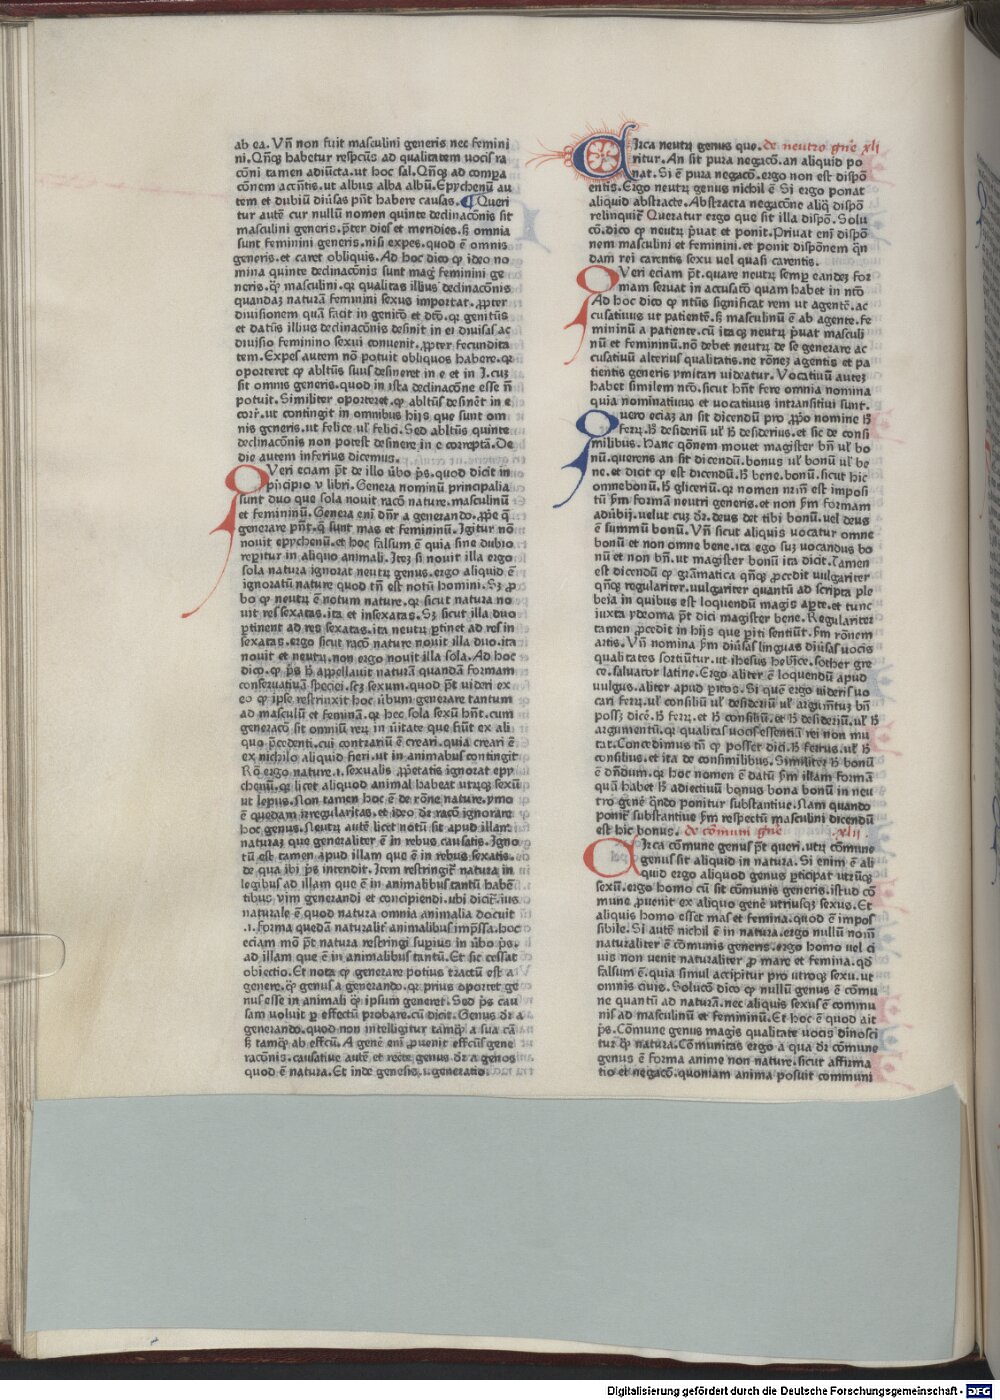 ab ea. Vñ non fuit masculini generis nec femini
ni. Qñꝗ habetur respcūs ad qualitatem vocis ra
cōni tamen adiūcta. ut hoc sal. Qñꝗ ad compa
cōnem accñtis. ut albus alba albū. Epychenū au
tem et dubiū diūsas pñt habere causas. Queri
tur autē cur nullū nomen quinte declinacōnis sit
masculini generis. p̄ter dies et meridies. ſʒ omnia
sunt feminini generis. nisi expes. quod ē omnis
generis. et caret obliquis. Ad hoc dico ꝙ ideo no
mina quinte declinacōnis sunt magꝭ feminini ge
neris. ꝙ̄ masculini. qr qualitas illius declinacōnis
quandaʒ naturā feminini sexus importat. ꝓpter
diuisionem quā facit in genitō et dtō. qr genitūs
et datūs illius declinacōnis desinit in ei diuisas ac
diuisio feminino sexui conuenit. ꝓpter fecundita
tem. Expes autem nō potuit obliquos habere. qr
oporteret ꝙ abltūs suus desineret in e et in I. cuʒ
sit omnis generis. quod in ista declinacōne esse ñ
potuit. Similiter oporteret. ꝙ abltūs desinēt in e
corr̄. ut contingit in omnibus hijs que sunt om
nis generis. ut felice ul̄ felici. Sed abltūs quinte
declinacōnis non potest desinere in e correptā. De
die autem inferius dicemus.
QVeri eciam pt̄ de illo ūbo p̄s. quod dicit in
pⁱncipio v libri. Genera nominū principalia
sunt duo que sola nouit racō nature. masculinū
et femininū. Genera enī dn̄r a generando. ꝓpe q̄
generare pñt. q̄ sunt mas et femininū. Igitur nō
nouit epychenū. et hoc falsum ē quia sine dubio
repitur in aliquo animali. Iteʒ si nouit illa ergo
sola natura ignorat neutꝝ genus. ergo aliquid ē
ignoratū nature quod tñ est notū homini. Sʒ ꝓ
bo ꝙ neutꝝ ē notum nature. qr sicut natura no
uit res sexatas. ita et insexatas. Sʒ sicut illa duo
ꝑtinent ad res sexatas. ita neutꝝ ꝑtinet ad res in
sexatas. ergo sicut racō nature nouit illa duo. ita
nouit et neutꝝ. non ergo nouit illa sola. Ad hoc
dico. ꝙ p̄s ħ appellauit naturā quandā formam
conseruatiuā speciei. scʒ sexum. quod pt̄ uideri ex
eo ꝙ ipse restrinxit hoc ūbum generare tantum
ad masculū et feminā. qr hec sola sexū hñt. cum
generacō sit omniū rerꝝ in ūitate que fiūt ex ali
quo p̄cedenti. cui contrariū ē creari. quia creari ē
ex nichilo aliquid fieri. ut in animabus contingit
Rō ergo nature. i. sexualis ꝓpetatis ignorat epy
chenū. qr licet aliquod animal habeat utrūqʒ sexū
ut lepus. Non tamen hoc ē de rōne nature. ymo
ē quedam irregularitas. et ideo dr̄ racō ignorare
hoc genus. Neutꝝ autē licet notū sit apud illam
naturaʒ que generaliter ē in rebus causatis. Igno
tū est tamen apud illam que ē in rebus sexatis.
de qua ibi p̄s intendit. Item restringit̄ natura in
legibus ad illam que ē in animabus tantū habē
tibus vim generandi et concipiendi. ubi dicit̄. ius
naturale ē quod natura omnia animalia docuit
.i. forma quedā naturalit̄ animalibus imp̄ssa. hoc
eciam mō pt̄ natura restringi supius in ūbo p̄s.
ad illam que ē in animalibus tantū. Et sic cessat
obiectio. Et nota ꝙ generare potius tractū est a
genere. ꝙ̄ genus a generando. qr prius oportet ge
nus esse in animali ꝙ̄ ipsum generet. Sed p̄s cau
sam voluit ꝑ effectū probare. cū dicit. Genus dr̄ a
generando. quod non intelligitur tamꝙ̄ a sua cā
ſʒ tamꝙ̄ ab effcū. A genē enī ꝓuenit effcūs gene
racōnis. causatiue autē et recte genus dr̄ a genos
quod ē natura. Et inde genesis. ı. generatio.
CIrca neutꝝ genus que. de neutro gñe xli
ritur. An sit pura negacō. an aliquid po
nat. Si ē pura negacō. ergo non est dispō
entis. Ergo neutꝝ genus nichil ē Si ergo ponat
aliquid abstracte. Abstracta negacōne aliq̄ dispō
relinquit̄ Queratur ergo que sit illa dispō. Solu
cō. dico ꝙ neutꝝ p̄uat et ponit. Priuat enī dispō
nem masculini et feminini. et ponit dispōnem q̄n
dam rei carentis sexu uel quasi carentis.
QVeri eciam pt̄. quare neutꝝ semꝑ eandeʒ for
mam seruat in accusatō quam habet in ntō
Ad hoc dico ꝙ ntūs significat rem ut agentē. ac
cusatiuus ut patientē. ſʒ masculinū ē ab agente. fe
mininū a patiente. cū itaqʒ neutꝝ p̄uat masculi
nū et femininū. nō debet neutꝝ de se generare ac
cusatiuū alterius qualitatis. ne rōneʒ agentis et pa
tientis generis ymitari uideatur. Vocatiuū auteʒ
habet similem ntō. sicut hñt fere omnia nomina
quia nominatiuus et vocatiuus intransitiui sunt.
Quero eciaʒ an sit dicendū pro ꝓpo nomine ħ
ferꝝ. ħ desideriū ul̄ ħ desiderius. et sic de consi
milibus. Hanc qōnem mouet magister bñ ul̄ bo
nū. querens an sit dicendū. bonus ul̄ bonū ul̄ be
ne. et dicit ꝙ est dicendū. ħ bene. bonū. sicut hic
omnebonū. ħ gliceriū. qr nomen nr̄m est imposi
tū ẜm formā neutri generis. et non ẜm formam
adūbij. uelut cuʒ dr̄. deus det tibi bonū. uel deus
ē summū bonū. Vñ sicut aliquis vocatur omne
bonū et non omne bene. ita ego suʒ vocandus bo
nū et non bñ. ut magister bonū ita dicit. Tamen
est dicendū ꝙ grāmatica qñꝗ ꝓcedit vulgariter
qñꝗ regulariter. vulgariter quantū ad scripta ple
beia in quibus est loquendū magis aꝑte. et tunc
iuxta ydeoma pt̄ dici magister bene. Regulariter
tamen ꝓcedit in hijs que ꝑiti sentiūt. ẜm rōnem
artis. Vñ nomina ẜm diūsas linguas diūsas uocis
qualitates sortiūtur. ut ihesus hebⁱce. sother gre
ce. saluator latine. Ergo aliter ē loquendū apud
vulgus. aliter apud ꝑitos. Si que ergo uideris uo
cari ferꝝ. ul̄ consiliū ul̄ desideriū ul̄ argumētuʒ bñ
possʒ dicē. ħ ferꝝ. et ħ consiliū. et ħ desideriū. ul̄ ħ
argumentū. qr qualitas uocis essentiā rei non mu
tat. Concedimus tñ ꝙ posset dici. ħ ferrus. ul̄ ħ
consilius. et ita de consimilibus. Similiter ħ bonū
ē dñdum. qr hoc nomen ē datū ẜm illam formā
quā habet ħ adiectiuū bonus bona bonū in neu
tro genē qñdo ponitur substantiue. Nam quando
ponit̄ substantiue ẜm respectū masculini dicendū
est hic bonus. de cōmuni gñe .xlii.
CIrca cōmune genus pt̄ queri. utꝝ cōmune
genus sit aliquid in natura. Si enim ē ali
quid ergo aliquod genus ꝑticipat utrūqʒ
sexū. ergo homo cū sit cōmunis generis. istud cō
mune ꝓuenit ex aliquo genē utriusqʒ sexus. Et
aliquis homo esset mas et femina. quod ē impos
sibile. Si autē nichil ē in natura. ergo nullū nom̄
naturaliter ē cōmunis generis. ergo homo uel ci
uis non uenit naturaliter ꝓ mare et femina. qd̄
falsum ē. quia simul accipitur pro utroqʒ sexu. ut
omnis ciuis. Solucō dico ꝙ nullū genus ē cōmu
ne quantū ad naturā. nec aliquis sexus ē commu
nis ad masculinū et femininū. Et hoc ē quod ait
p̄s. Comune genus magis qualitate uocis dinosci
tur ꝙ̄ natura. Cōmunitas ergo a qua dr̄ cōmune
genus ē forma anime non nature. sicut affirma
tio et negacō. quoniam anima posuit communi
Digitalisierung gefördert durch die Deutsche Forschungsgemeinschaft - DFG